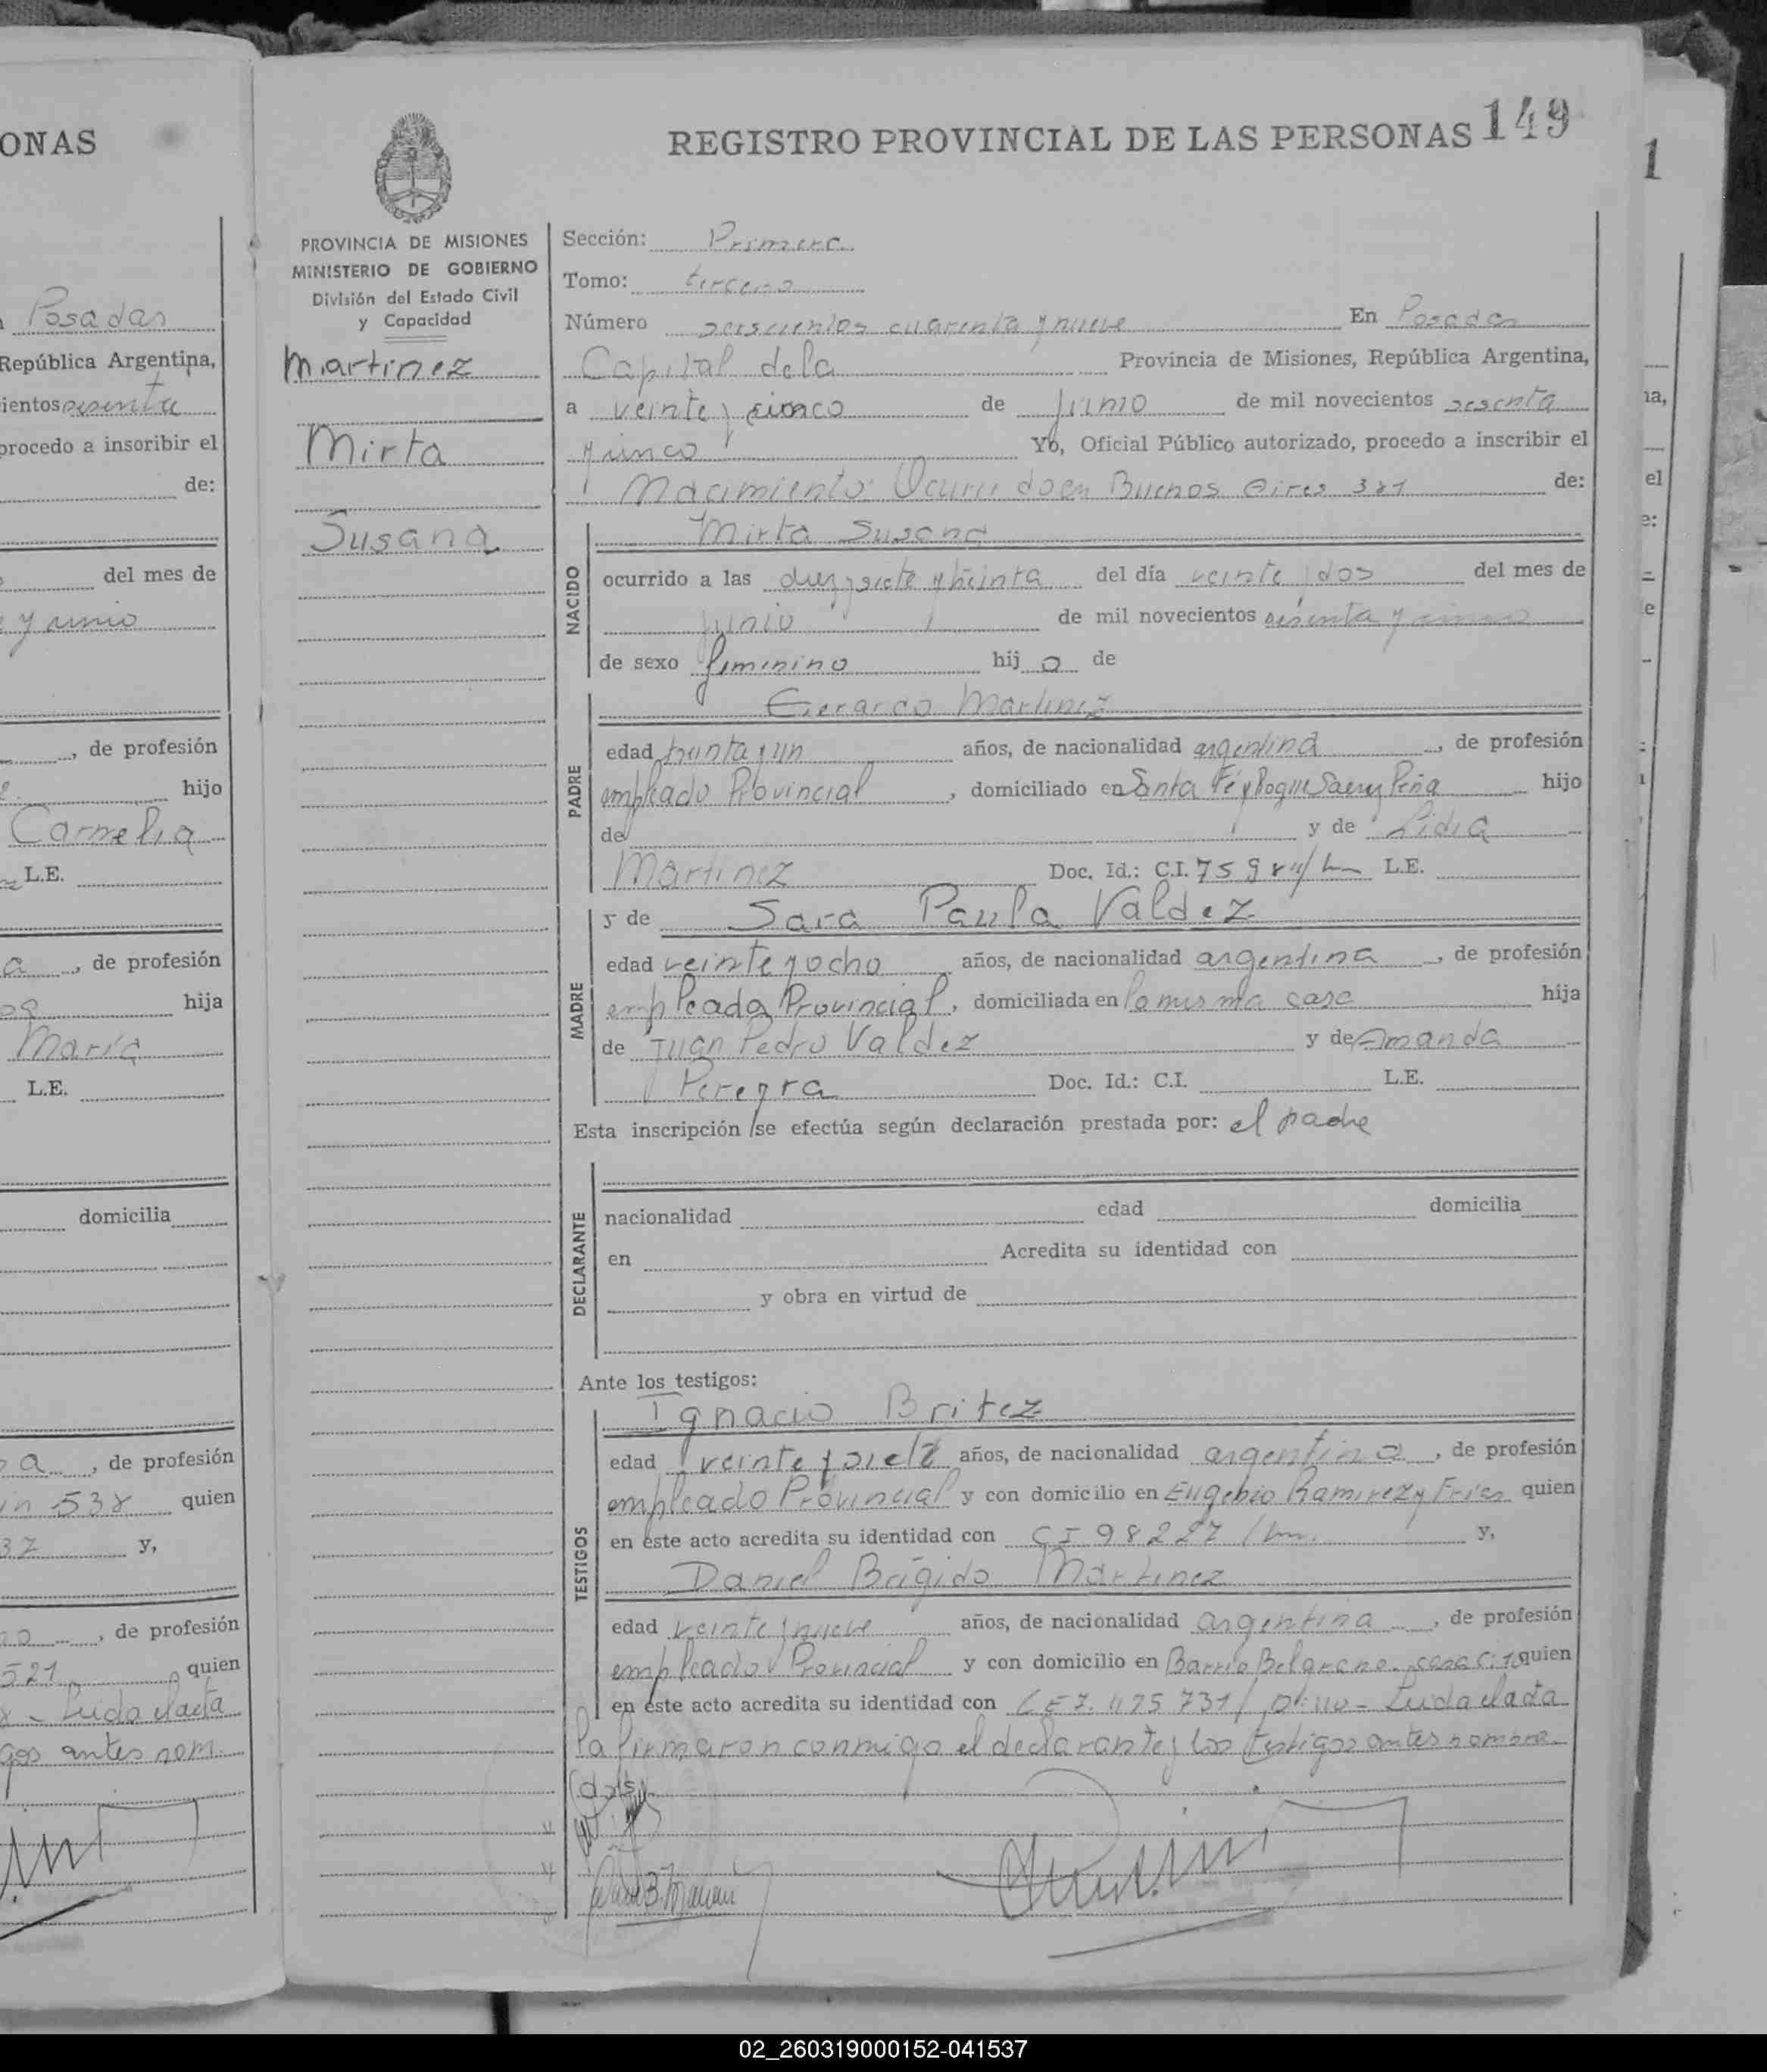 ONAS
Posadas
República Argentina,
ientos sesenta
procedo a insoribir el
de:
del mes de
y cinco
de profesión
hijo
Carmelia
L.E.
a, de profesión
hija
María
L.E.
domicilia
a, de profesión
in 538 quien
37 y,
, de profesión
521 quien
Leida el acta
gos antes nom.
REGISTRO PROVINCIAL DE LAS PERSONAS 149
PROVINCIA DE MISIONES
MINISTERIO DE GOBIERNO
División del Estado Civil
y Capacidad
Martinez
Mirta
Susana
Sección: Primera
Tomo: tercero
Número seiscientos cuarenta y nueve En Posadas
Capital de la Provincia de Misiones, República Argentina,
a veinte y cinco de Junio de mil novecientos sesenta
y cinco Yo, Oficial Público autorizado, procedo a inscribir el
Nacimiento Ocurrido en Buenos Aires 381 de:
NACIDO
Mirta Susana
ocurrido a las diez y siete y treinta del día veinte y dos del mes de
junio de mil novecientos sesenta y cinco
de sexo femenino hij a de
PADRE
Gerardo Martinez
edad treinta y un años, de nacionalidad argentina, de profesión
empleado Provincial, domiciliado en Santa Fé y Roque Saenz Peña hijo
de y de Lidia
Martinez Doc. Id.: C.I. L.E.
MADRE
y de Sara Paula Valdez
edad veinte y ocho años, de nacionalidad argentina, de profesión
empleada Provincial, domiciliada en la misma casa hija
de Juan Pedro Valdez y de Amanda
Pereyra Doc. Id.: C.I. L.E.
Esta inscripción se efectúa según declaración prestada por: el padre
DECLARANTE
nacionalidad edad domicilia
en Acredita su identidad con
y obra en virtud de
Ante los testigos:
TESTIGOS
Ignacio Britez
edad veinte y siete años, de nacionalidad argentina, de profesión
empleado Provincial y con domicilio en Eugenio Ramirez y Frias quien
en este acto acredita su identidad con CI 98227 y,
Daniel Brígido Martinez
edad veinte y nueve años, de nacionalidad argentina, de profesión
empleado Provincial y con domicilio en Barrio Belgrano casa quien
en este acto acredita su identidad con LE 7.475 731 Leida el acta
la firmaron conmigo el declarante y los testigos antes nombra-
dos
1
na,
el
e:
02_260319000152-041537